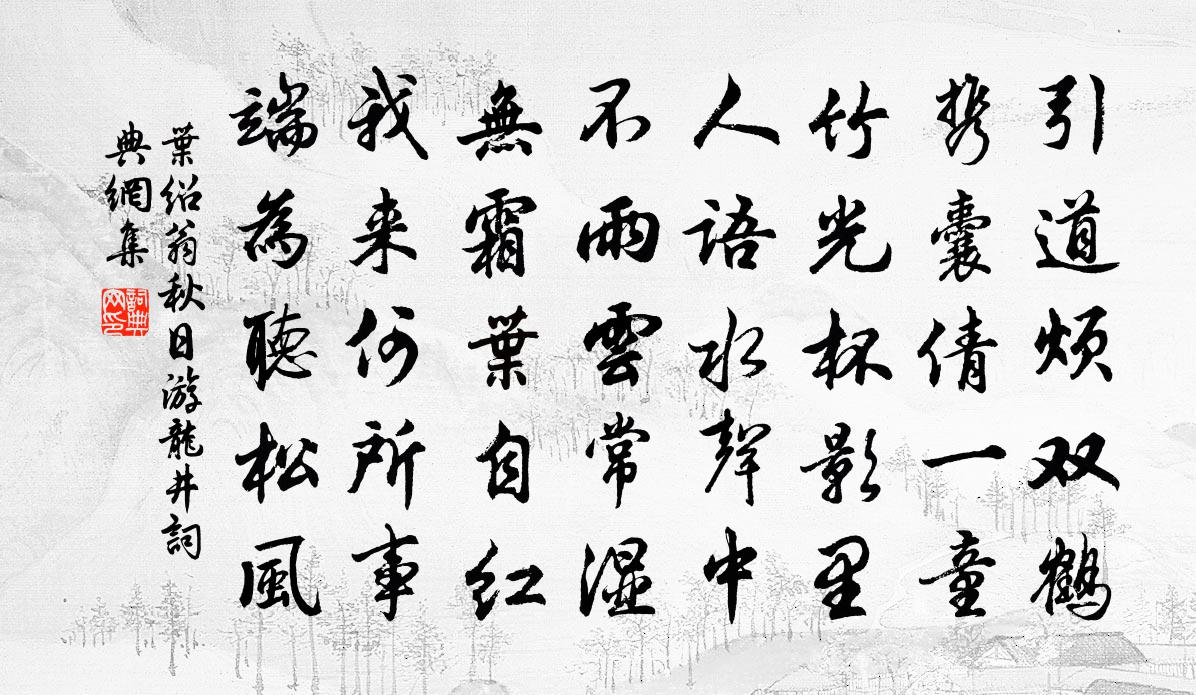 引道烦双鹤
携囊倩一童
竹光杯影里
人语水聲中
不雨雲常湿
無霜葉自红
我来何所事
端為聽松風
葉绍翁秋日游龍井詞
典網集
詞典
网印